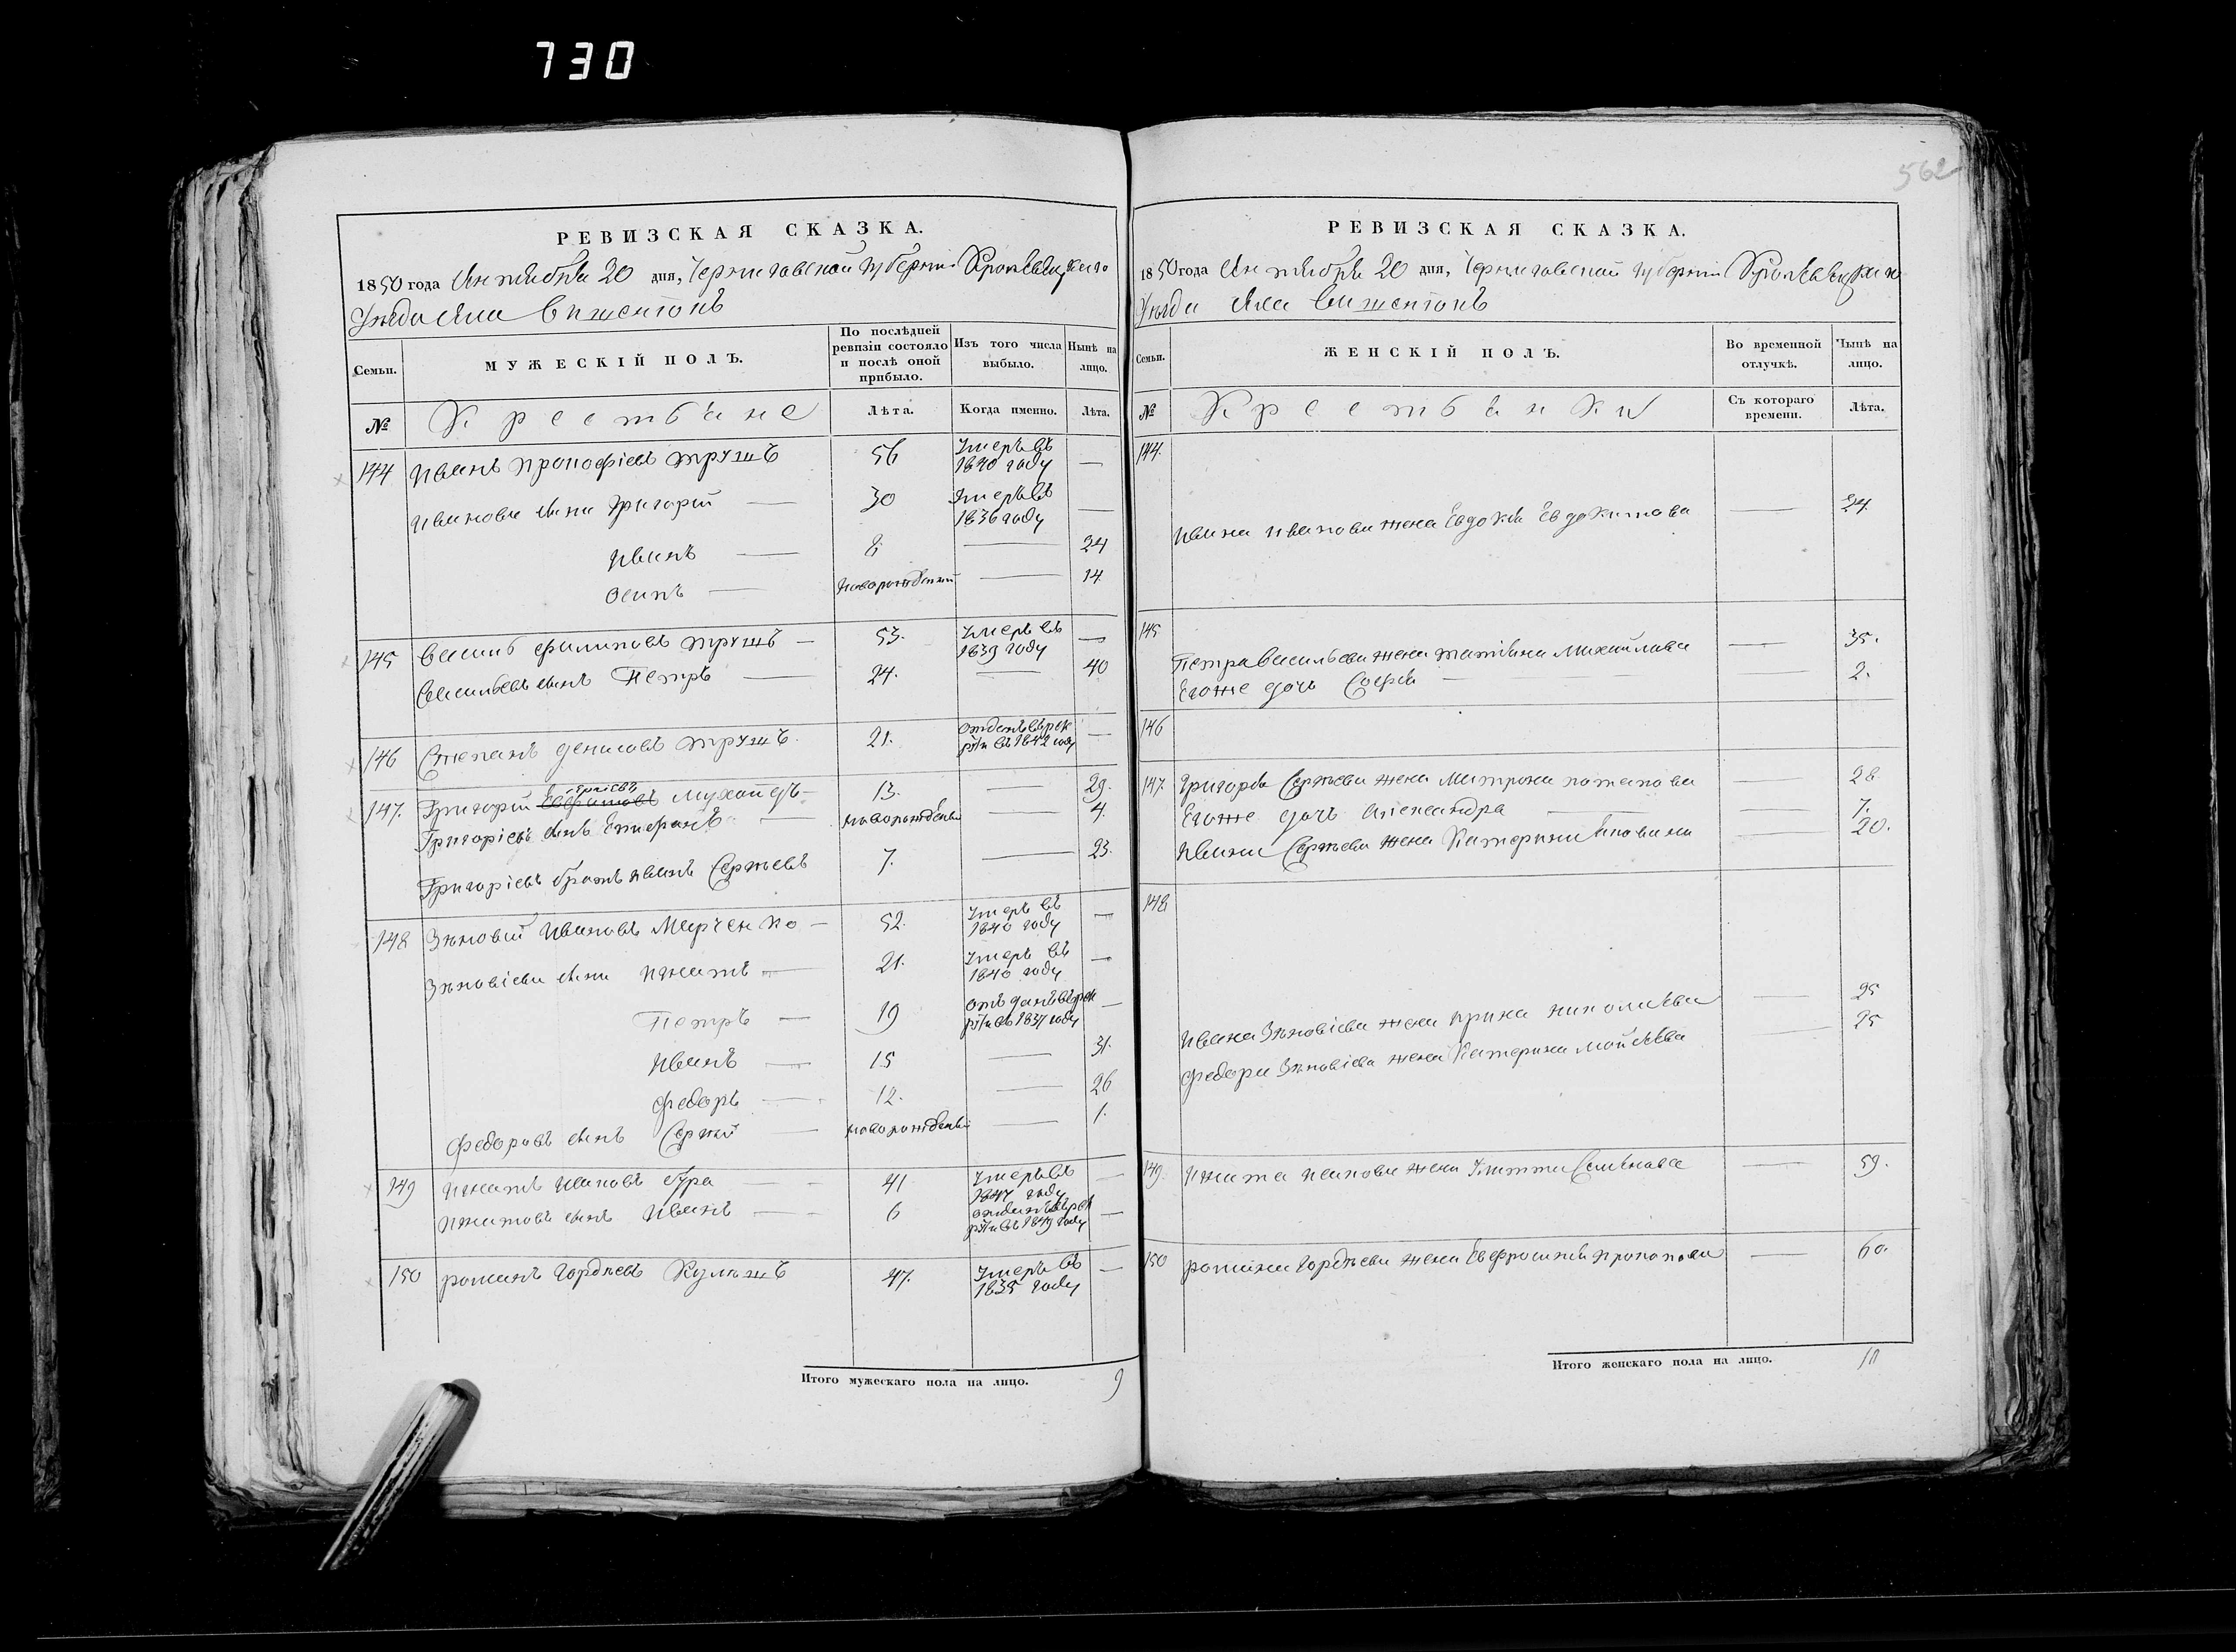 730
562
РЕВИЗСКАЯ СКАЗКА.
1850 года Октября 20 дня, Черниговской губернии Кролевецкаго
Уезда Села
МУЖЕСКІЙ ПОЛЪ.
Семьи.
По послѣдней ревизіи состояло и послѣ оной прибыло.
Изъ того числа выбыло.
Нынѣ на лицо.
№
Крестьяне
Лѣта.
Когда именно.
Лѣта.
144 Иванъ Прокофіевъ Трушъ 56 Умеръ въ 1840 году —
Ивановы сыны Григорій — 30 Умеръ въ 1836 году —
Иванъ — 8 — 24
Осипъ — новорожденный — 14
145 Василь Филиповъ Трушъ — 53. Умеръ въ 1839 году —
Васильевъ сынъ Петръ — 24. — 40
146 Степанъ Денисовъ Трушъ. 21. отданъ въ рек руты въ 1842 году —
147. Григорій Сергіевъ 13. — 29.
Григоріевъ сынъ — новорожденный — 4.
Григоріевъ братъ Иванъ Сергѣевъ 7. — 23.
148 Зѣновій Ивановъ Марченко — 52. Умеръ въ 1840 году —
Зѣновіевы сыны Игнатъ — 21. Умеръ въ 1840 году —
Петръ — 19 отъданъ въ рек руты въ 1837 году —
Иванъ — 15 — 31.
Федоръ — 12. — 26
Федоровъ сынъ Сергѣй — новорожденный — 1.
149 Игнатъ 41 Умеръ въ 1847 году —
Игнатовъ сынъ Иванъ — 6 отданъ въ рек руты въ 1849 году —
150 Романъ Гордѣевъ Кулѣшъ 47. Умеръ въ 1835 году —
Итого мужескаго пола на лицо. 9
РЕВИЗСКАЯ СКАЗКА.
1850 года Октября 20 дня, Черниговской губернии Кролевецкаго
Уезда Села
Семьи.
ЖЕНСКІЙ ПОЛЪ.
Во временной отлучкѣ.
Нынѣ на лицо.
№
Крестьянки
Съ котораго времени.
Лѣта.
144.
Ивана Иванова жена Евдокія Евдокимова — 24.
145
Петра Васильева жена Татіяна Михайлова — 35.
Егоже дочь Софія — 2.
146
147. Григорія Сергѣева жена Матрона Потапова — 28.
Егоже дочь Александра — 7.
Ивана Сергѣева жена Катерина — 20.
148
Ивана Зѣновіева жена Ирина Николаева — 25
Федора Зѣновіева жена Катерина Мойсѣева — 25
149. Игната жена Семенова — 59.
150 Романа Гордѣева жена Евфросинія — 60.
Итого женскаго пола на лицо. 10